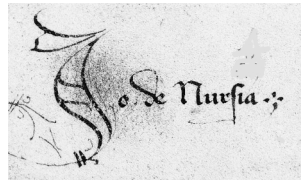 Jo. de Nursia